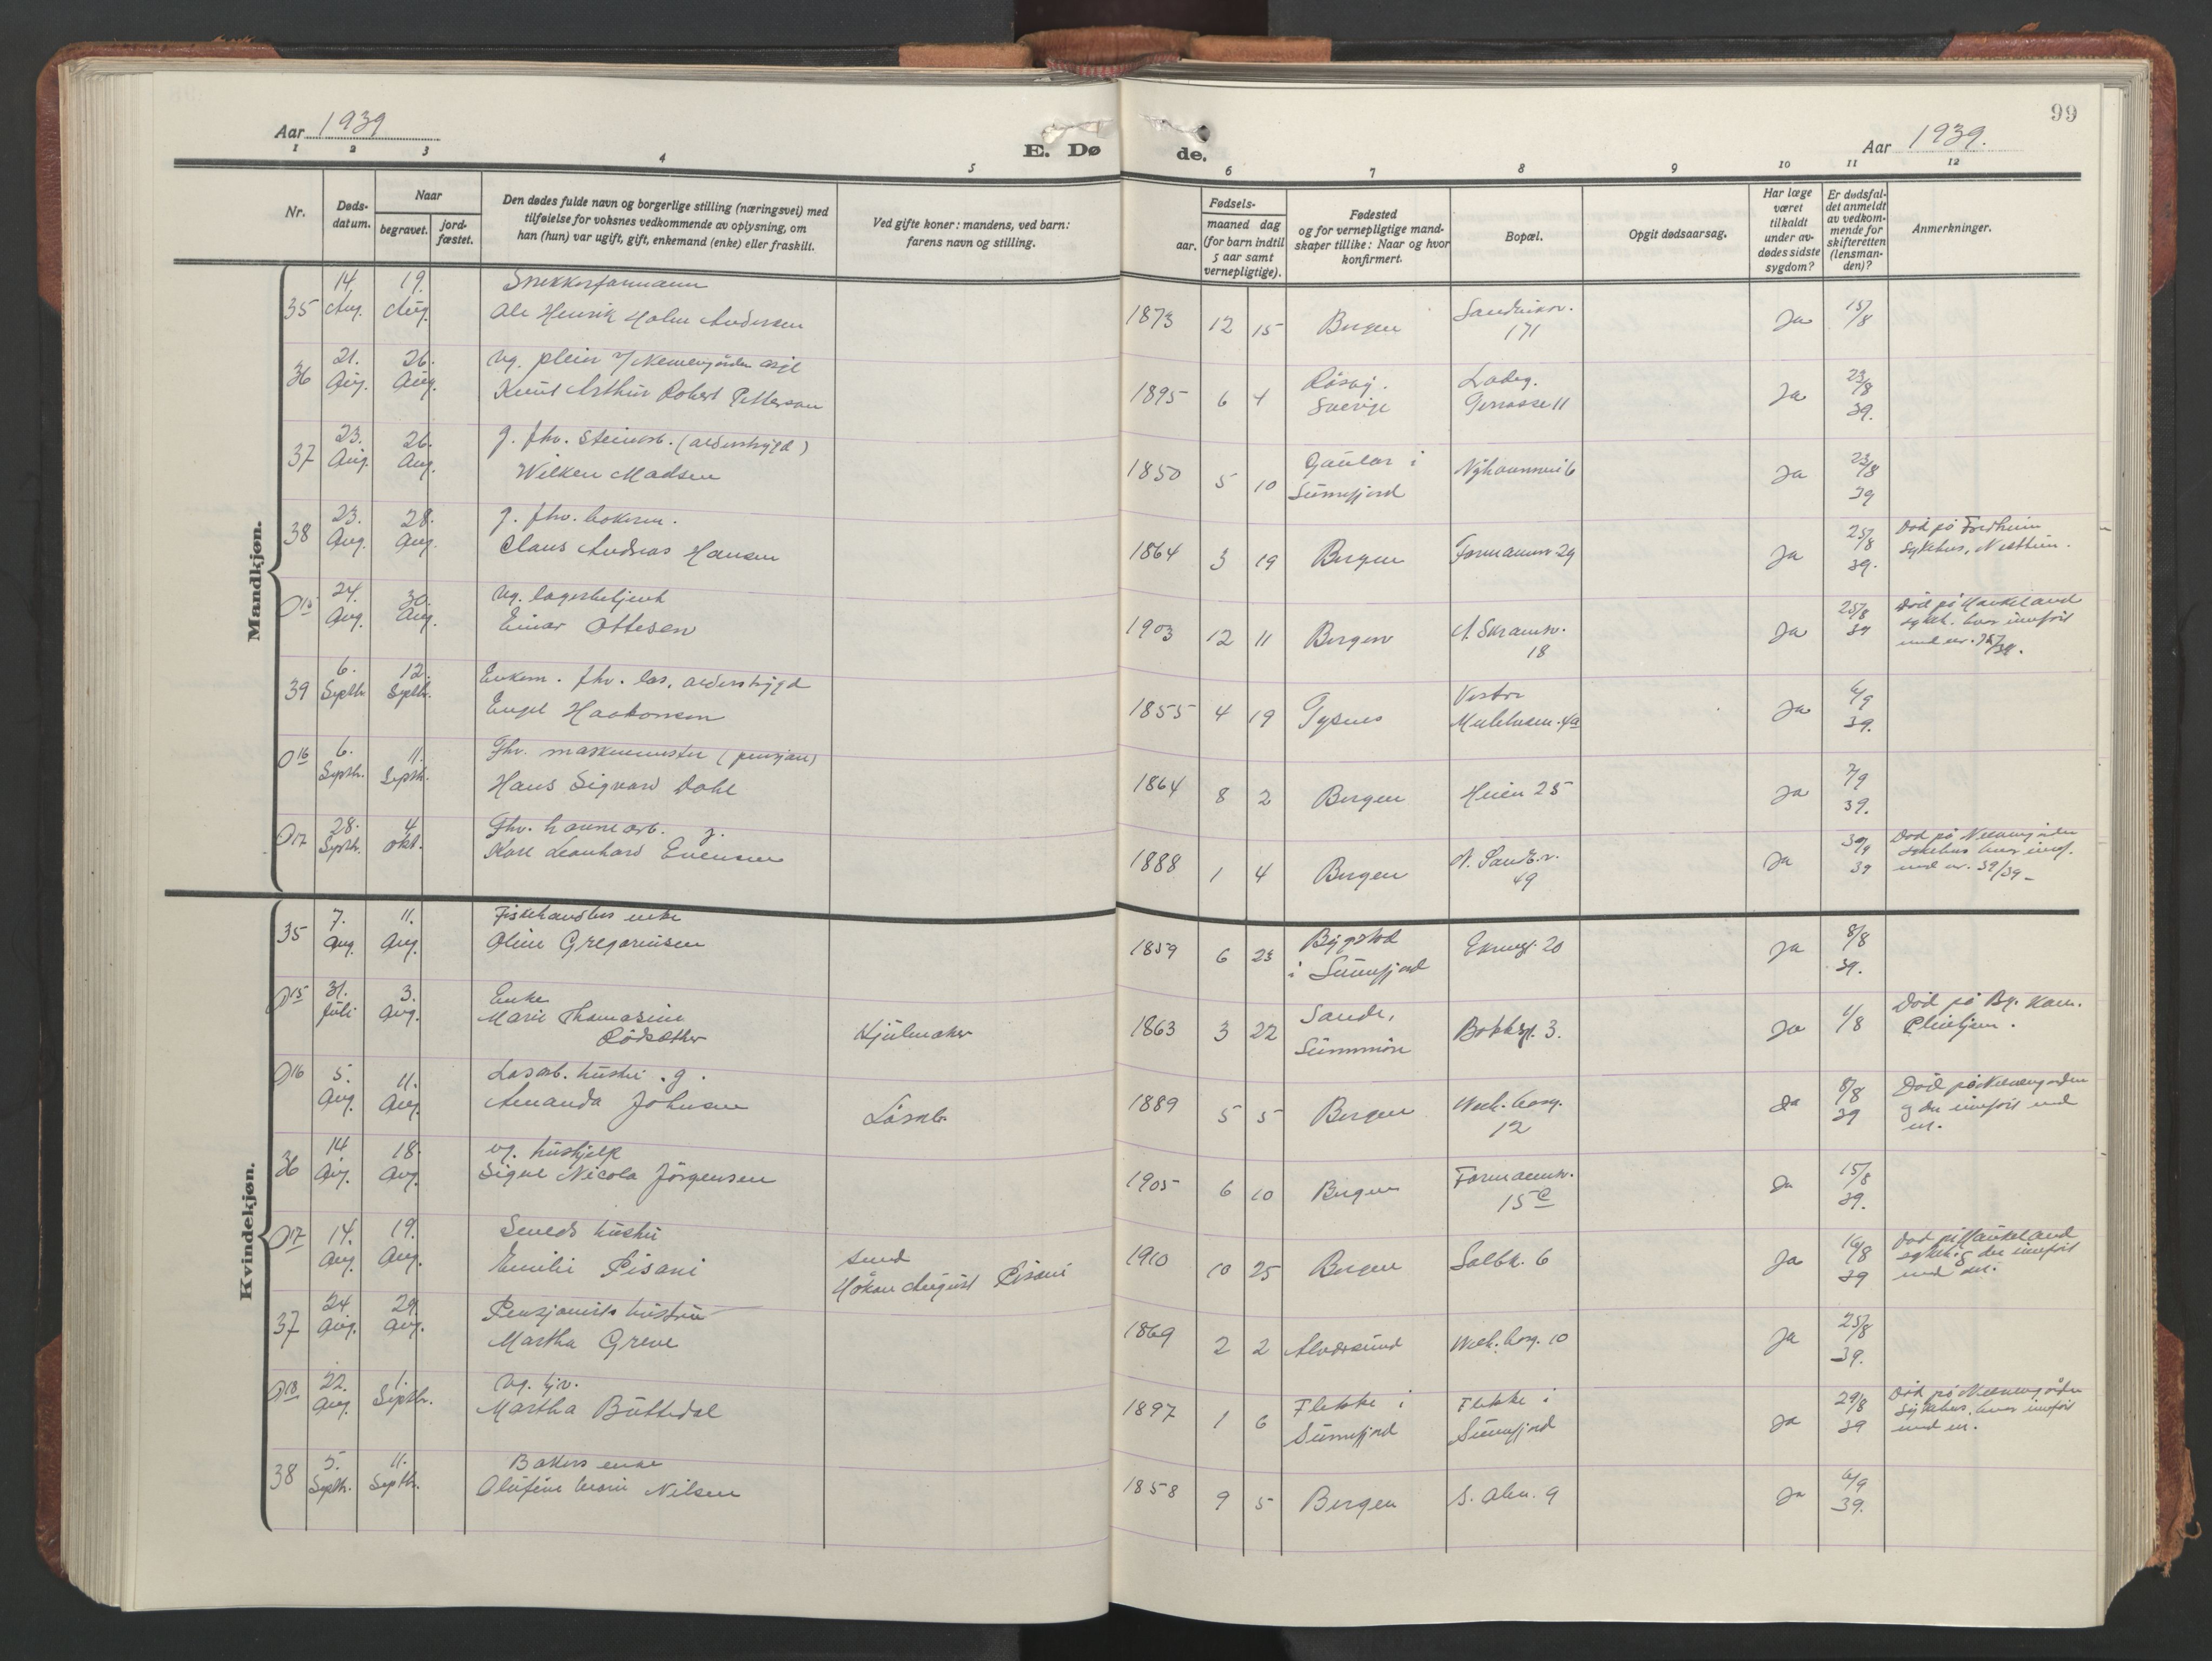 Aar 1939
E. Dø
de.
Aar 1939.
99
1 2 3 4 5 6 7 8 9 10 11 12
Nr.
Døds-
datum.
Naar
begravet.
jord-
fæstet.
Den dødes fulde navn og borgerlige stilling (næringsvei) med
tilføielse for voksnes vedkommende av oplysning, om
han (hun) var ugift, gift, enkemand (enke) eller fraskilt.
Ved gifte koner: mandens, ved barn:
farens navn og stilling.
Fødsels-
aar.
maaned dag
(for barn indtil
5 aar samt
vernepligtige).
Fødested
og for vernepligtige mand-
skaper tillike: Naar og hvor
konfirmert.
Bopæl.
Opgit dødsaarsag.
Har læge
været
tilkaldt
under av-
dødes sidste
sygdom?
Er dødsfal-
det anmeldt
av vedkom-
mende for
skifteretten
(lensman-
den)?
Anmerkninger.
Mandkjøn.
35 14. Aug. 19. Aug.
Snekkerformann
Ole Henrik Holm Andersen
1873 12 15 Bergen
Sandviksv.
171
Ja 15/8
36 21. Aug. 26. Aug.
ug. pleier
Knut Arthur Robert Petterson
1895 6 4
Sverige
Ladeg.
Terrasse 11
Ja 23/8 39.
37 23. Aug. 26. Aug.
g. fhv. Steinarb. (alderstrygd)
Wilken Madsen
1850 5 10
Gaular i
Sunnfjord
Nyhavnsvei 6
Ja 23/8 39
38 23. Aug. 28. Aug.
g. fhv. bokserm.
Claus Andreas Hansen
1864 3 19 Bergen
Formannsv. 29
Ja 25/8 39.
Død på Fredheim
sykehus, Nesttun.
D 15 24. Aug. 30. Aug.
Ug. lagerbetjent
Einar Ottesen
1903 12 11 Bergen
A. Skramsv.
18
Ja 25/8 39
Død på Haukeland
sykeh. hvor innført
med nr.
39 6. Septbr. 12. Septbr.
Enkem. fhv. las. alderstrygd
Engel Haakonsen
1855 4 19 Tysnes
Vestre
Muhlehusen. 4a
Ja 6/9 39.
D 16 6. Septbr. 11. Septbr.
Fhv. maskinmester (pensjon)
Hans Sigvard Dahl
1864 8 2 Bergen
Heien 25
Ja 7/9 39.
D 17 28. Septbr. 4 okt.
Fhv. havnearb. g.
Karl Leonhard Evensen
1888 1 4 Bergen
N. Sandv.v.
49
Ja 30/9 39
Død på Neevengården
sykehus hvor innf.
med nr. 39/39 –
Kvindekjøn.
35 7. Aug. 11. Aug.
Fiskehandlers enke
Oline Gregoriusen
1859 6 23
Bygstad
i Sunnfjord
Ekregt. 20
Ja 8/8 39.
D 15 31. Juli 3. Aug.
Enke
Marie Thomasine
Rødsæther
Hjulmaker
1863 3 22
Sande,
Sunnmøre
Bakkegt. 3.
Ja 1/8
Død på By. Kom.
Pleiehjem.
D 16 5. Aug. 11. Aug.
Løsarb. hustru. g.
Amanda Johnsen
Løsarb.
1889 5 5 Bergen
Week. borg.
12
Ja 8/8 39
Død på Neevengården
og der innført med
nr.
36 14 Aug. 18. Aug.
ug. hushjelp
Signe Nicola Jörgensen
1905 6 10 Bergen
Formannsv.
15 c
Ja 15/8 39.
D 17 14. Aug. 19. Aug.
Smeds hustru
Emilie Pisani
smed
Håkon August Pisani
1910 10 25 Bergen
Solbk. 6
Ja 16/8 39
Død på Haukeland
sykeh. og der innført
med nr.
37 24. Aug. 29. Aug.
Pensjonists hustru
Martha Greve
1869 2 2 Alversund
Week. borg. 10
Ja 25/8 39.
D 18 22. Aug. 1. Septbr.
Ug. hjv.
Martha Buttedal
1897 1 6
Flekke i
Sunnfjord
Flekke i
Sunnfjord
Ja 29/8 39
Død på Neevengården
Sykehus, hvor innført
med nr.
38 5. Septbr. 11. Septbr.
Bakers enke
Olufine Marie Nilsen
1858 9 5 Bergen
S. alm. 9
Ja 6/9 39.